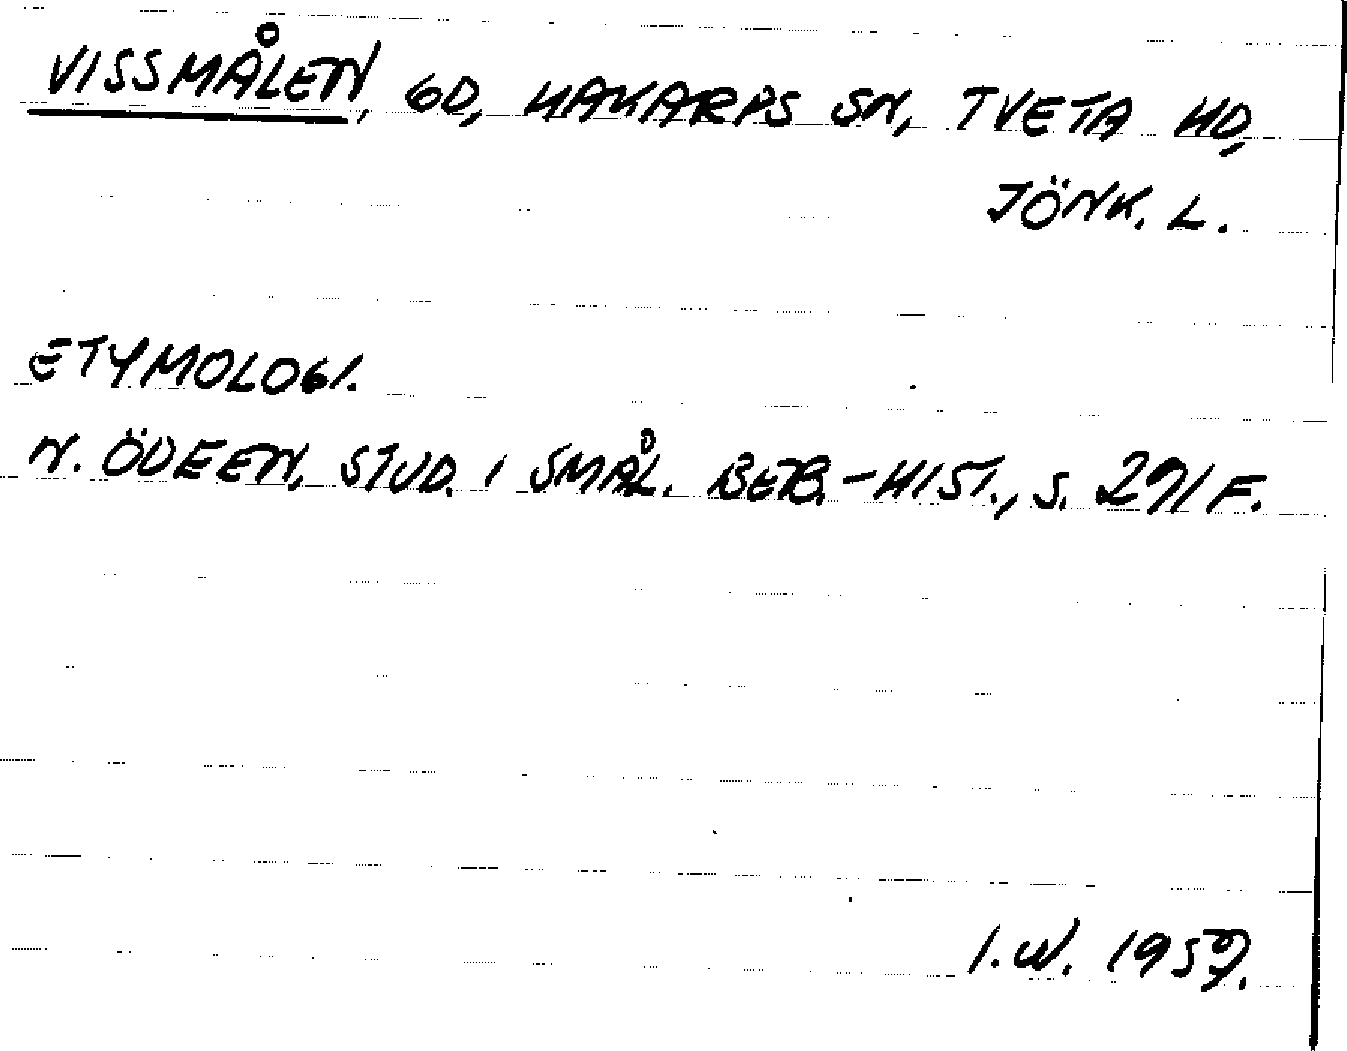 VISSMÅLEN, GD, HAKARPS SN, TVETA HD,
JÖNK. L.
ETYMOLOGI.
N. ÖDEEN, STUD. I SMÅL. BEB.-HIST., S. 291 F.
I.W. 1959.